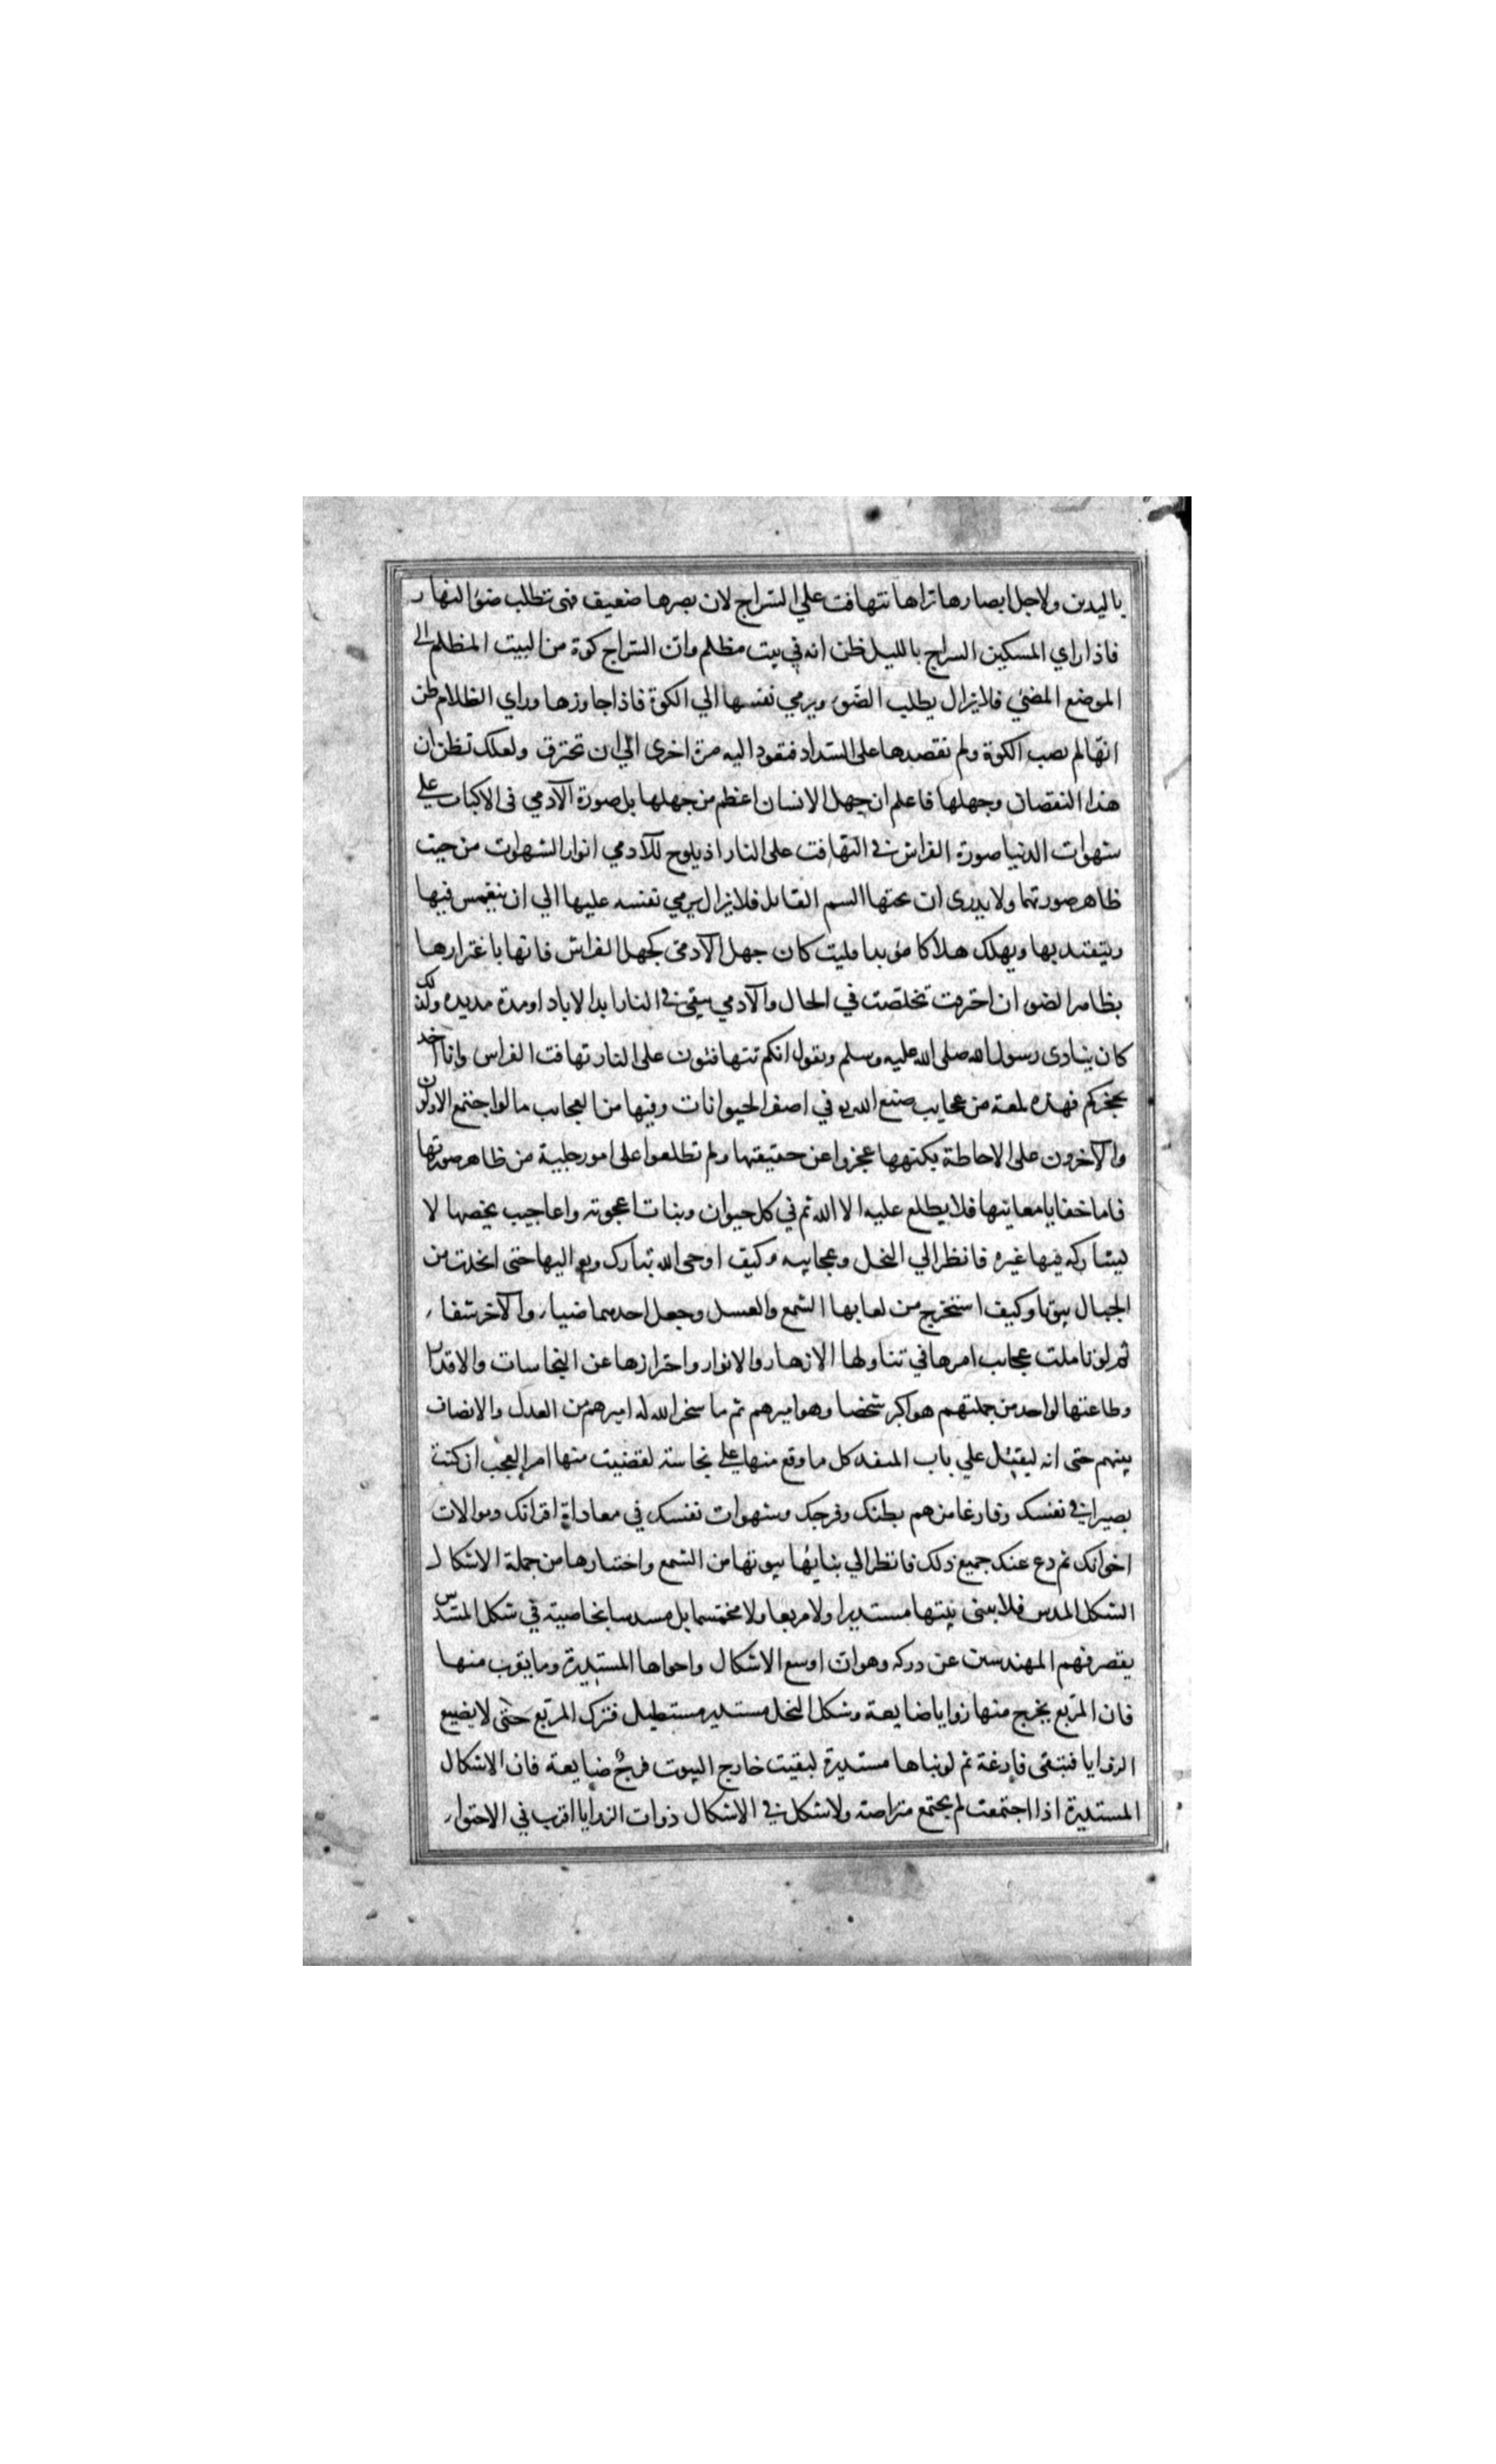 باليدين ولاجل ابصارها تراها تتهافت علي السراج لان بصرها ضعيف فهي تطلب ضؤ النهار
فاذا راي المسكين السراج بالليل ظن انه في بيت مظلم وان السراج كوة من البيت المظلم الي
الموضع المضئ فلا يزال يطلب الضوء ويرمي نفسها الي الكوة فاذا جاوزها وراي الظلام ظن
انها لم يصب الكوة ولم نقصدها على السداد فتعود اليه مرة اخرى الي ان تحترق ولعلك تظن ان
هذا النقصان وجهلها فاعلم ان جهل الانسان اعظم من جهلها بل صورة الآدمي في الاكباب علي
شهوات الدنيا صورة الفراش في التهافت على النار اذ يلوح للآدمي انوار الشهوات من حيث
ظاهر صورتها ولا يدرى ان تحتها السم القاتل فلا يزال يرمي نفسه عليها الي ان ينغمس فيها
ويتقيد بها ويهلك هلاكا مؤبدا فليت كان جهل الآدمي كجهل الفراش فانها باغترارها
بظاهر الضوء ان احترقت تخلصت في الحال والآدمي يبقى في النار ابد الاباد او مدة مديده ولذلك
كان ينادى رسول الله صلى الله عليه وسلم ويقول انكم تتهافتون على النار تهافت الفراش وانا آخذ
بحجزكم فهذه لمعة من عجايب صنع الله تع في اصغر الحيوانات وفيها من العجايب ما لو اجتمع الاولون
والآخرون على الاحاطة بكنهها عجزوا عن حقيقتها ولم تطلعوا على امور جلية من ظاهر صورتها
فاما خفايا معانيها فلا يطلع عليه الا الله ثم في كل حيوان ونبات اعجوبة واعاجيب يخصها لا
يشاركه فيها غيره فانظر الي النحل وعجايبه وكيف اوحى الله تبارك وتع اليها حتى اتخذت من
الجبال بيوتا وكيف استخرج من لعابها الشمع والعسل وجعل احدهما ضياء والآخر شفاء
ثم لو تاملت عجايب امرها في تناولها الازهار والانوار واحترازها عن النجاسات والاقذار
وطاعتها لواحد من جملتهم هو اكبر شخصا وهو اميرهم ثم ما سخر الله له اميرهم من العدل والانصاف
بينهم حتى انه ليقتل علي باب المنفذ كل ما وقع منها علي نجاسة لقضيت منها امر العجب ان كنت
بصيرا في نفسك وفارغا من هم بطنك وفرجك وشهوات نفسك في معاداة اقرانك وموالات
اخوانك ثم دع عنك جميع ذلك فانظر الي بنايها بيوتها من الشمع واختيارها من جملة الاشكال
الشكل المسدس فلا يبنى بيتها مستديرا ولا مربعا ولا مخمسا بل مسدسا بخاصية في شكل المسدس
يقصر فهم المهندسين عن دركه وهو ان اوسع الاشكال واحواها المستديرة وما يقرب منها
فان المربع يخرج منها زوايا ضايعة وشكل النحل مستدير مستطيل فترك المربع حتى لا يضيع
الزوايا فتبقى فارغة ثم لو بناها مستديرة لبقيت خارج البيوت فرج ضايعة فان الاشكال
المستديرة اذا اجتمعت لم يجتمع متراصة ولا شكل في الاشكال ذوات الزوايا اقرب في الاحتواء